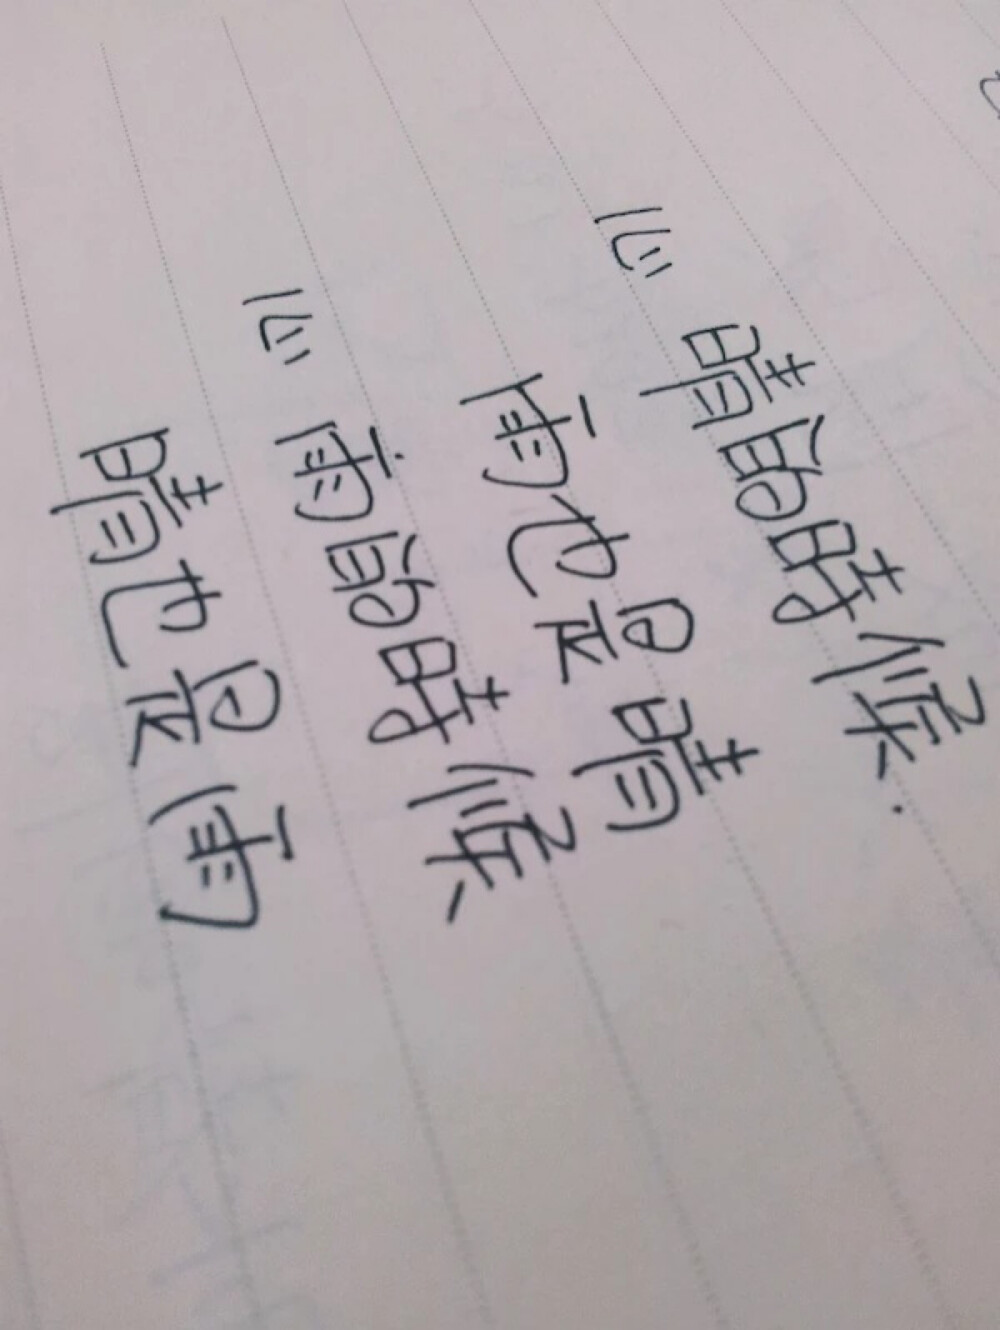 心晴的時候.
雨也是晴
心雨的時候
晴也是雨